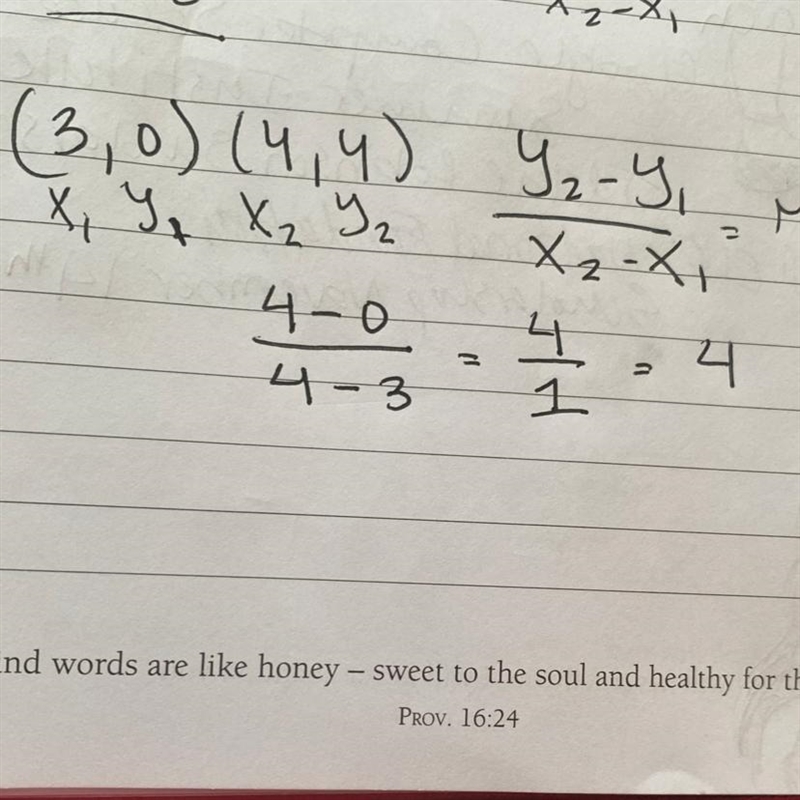 x₂-x₁
(3,0) (4,4) y₂-y₁/x₂-x₁ =
x₁ y₁ x₂ y₂
4-0/4-3 = 4/1 = 4
ind words are like honey – sweet to the soul and healthy for th
PROV. 16:24